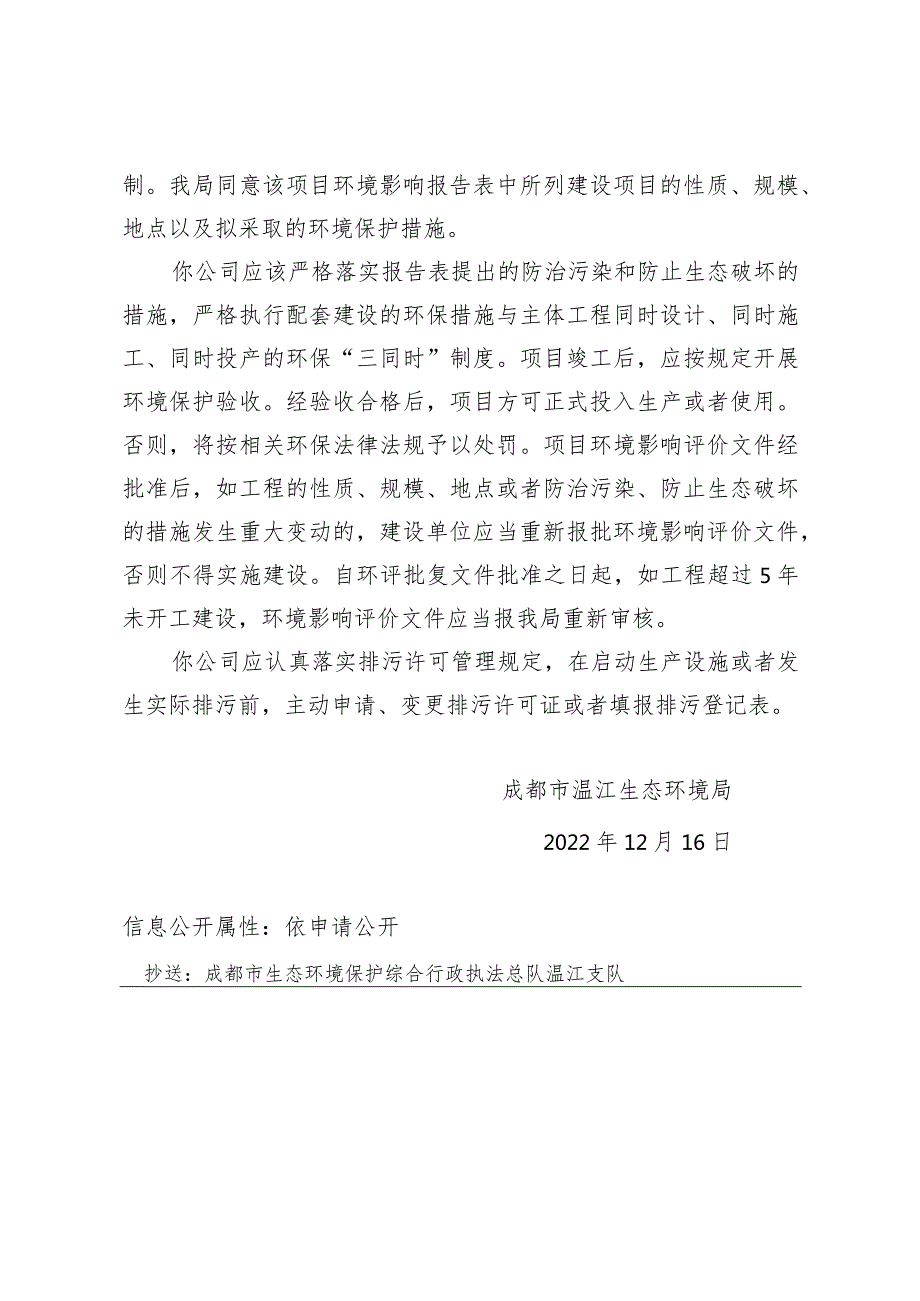 制。我局同意该项目环境影响报告表中所列建设项目的性质、规模、
地点以及拟采取的环境保护措施。
你公司应该严格落实报告表提出的防治污染和防止生态破坏的
措施，严格执行配套建设的环保措施与主体工程同时设计、同时施
工、同时投产的环保“三同时”制度。项目竣工后，应按规定开展
环境保护验收。经验收合格后，项目方可正式投入生产或者使用。
否则，将按相关环保法律法规予以处罚。项目环境影响评价文件经
批准后，如工程的性质、规模、地点或者防治污染、防止生态破坏
的措施发生重大变动的，建设单位应当重新报批环境影响评价文件，
否则不得实施建设。自环评批复文件批准之日起，如工程超过 5 年
未开工建设，环境影响评价文件应当报我局重新审核。
你公司应认真落实排污许可管理规定，在启动生产设施或者发
生实际排污前，主动申请、变更排污许可证或者填报排污登记表。
成都市温江生态环境局
2022 年 12 月 16 日
信息公开属性：依申请公开
抄送：成都市生态环境保护综合行政执法总队温江支队